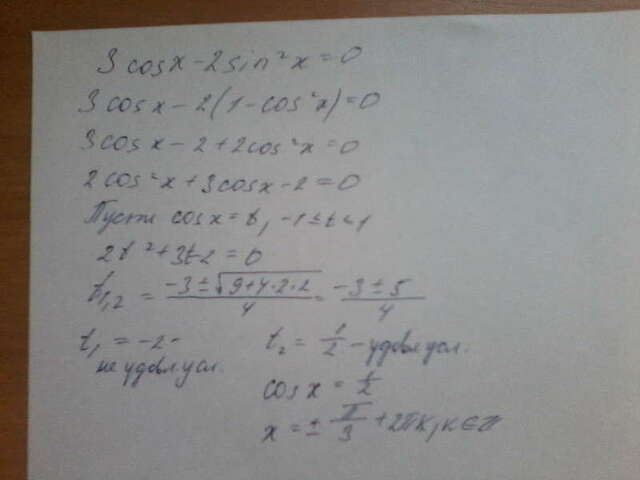 3 cos x - 2 sin² x = 0
3 cos x - 2(1 - cos² x) = 0
3 cos x - 2 + 2 cos² x = 0
2 cos² x + 3 cos x - 2 = 0
Пусть cos x = t, -1 ≤ t ≤ 1
2t² + 3t - 2 = 0
t₁,₂ = (-3 ± √(9 + 4·2·2))/4 = (-3 ± 5)/4
t₁ = -2 - t₂ = 1/2 - удовл усл.
не удовл усл.
cos x = 1/2
x = ± π/3 + 2πk, k ∈ ℤ